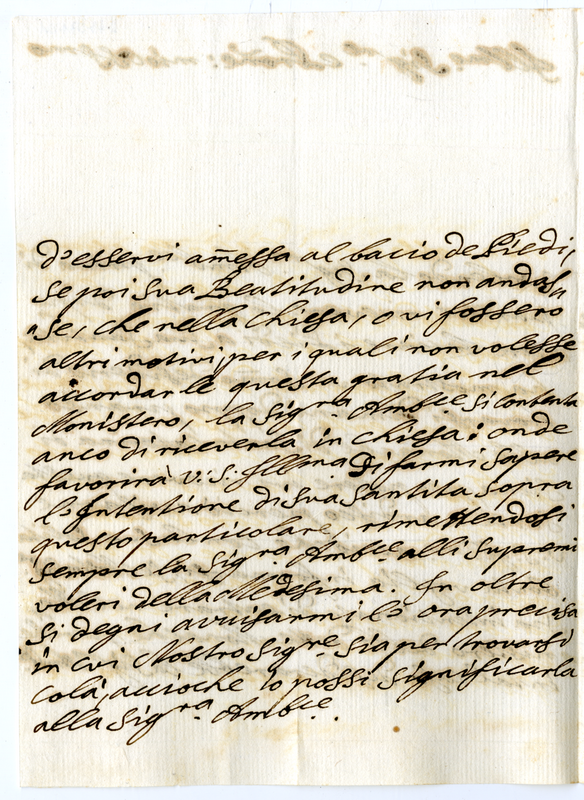 d'esservi am̅essa al bacio de Piedi,
se poi sua Beatitudine non andas„
„se, che nella chiesa, o vi fossero
altri motivi, per i quali non volesse
accordarle questa gratia nel
Monistero, la Sigra. Ambce si contenta
anco di riceverla in chiesa: onde
favorirà V. S. Illma di farmi sapere
lo Intentione di sua Santita sopra
questo particolare, rimettendosi
sempre la Sigra. Ambce. alli supremi
voleri della Medesima. In oltre
si degni avvisarmi lo ora precisa
in cui Nostro Sigre sia per trovarsi
colà, accioche io possi significarla
alla Sigra. Ambce.